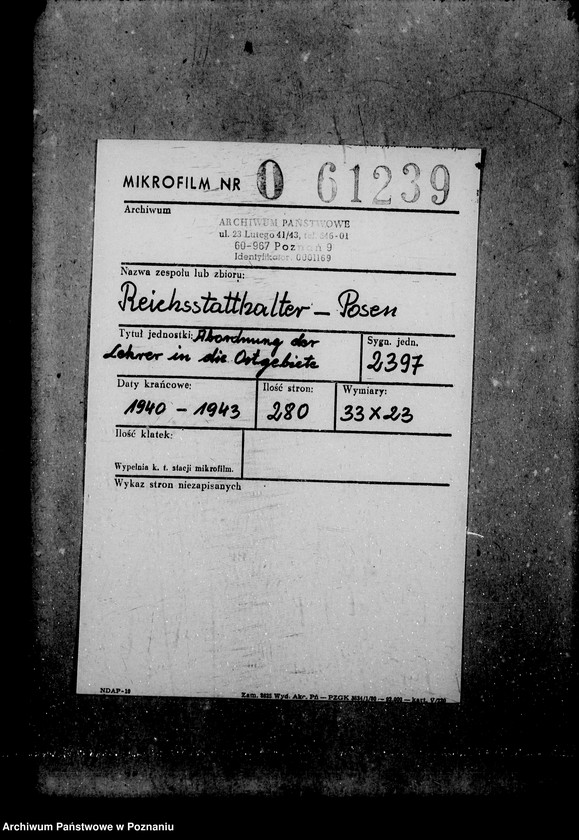 MIKROFILM NR 0 61239
Archiwum
ARCHIWUM PAŃSTWOWE
ul. 23 Lutego 41/43, tel. 546-01
60-967 Poznań 9
Identyfikator: 0001169
Nazwa zespołu lub zbioru:
Reichsstatthalter – Posen
Tytuł jednostki: Abordnung der
Lehrer in die Ostgebiete
Sygn. jedn.
2397
Daty krańcowe:
1940 – 1943
Ilość stron:
280
Wymiary:
33 x 23
Ilość klatek:
Wypełnia k. t. stacji mikrofilm.
Wykaz stron niezapisanych
NDAP-10
Wyd. Akc. Pń — PZGK
Archiwum Państwowe w Poznaniu